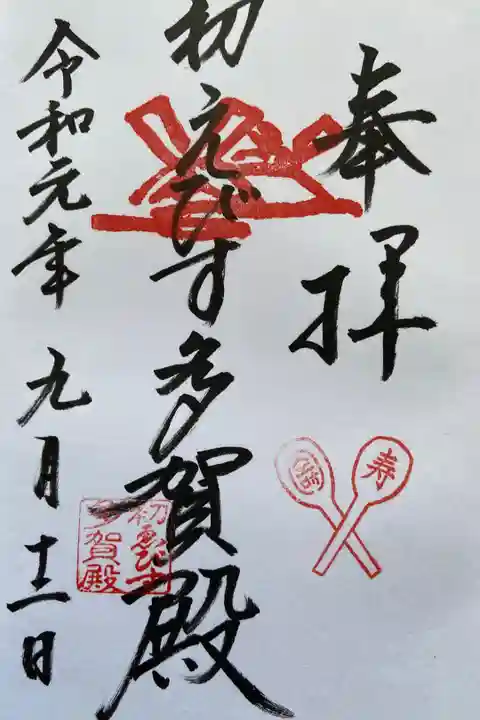 奉拝
初えびす多賀殿
令和元年九月十二日
寿
初ゑびす
多賀殿